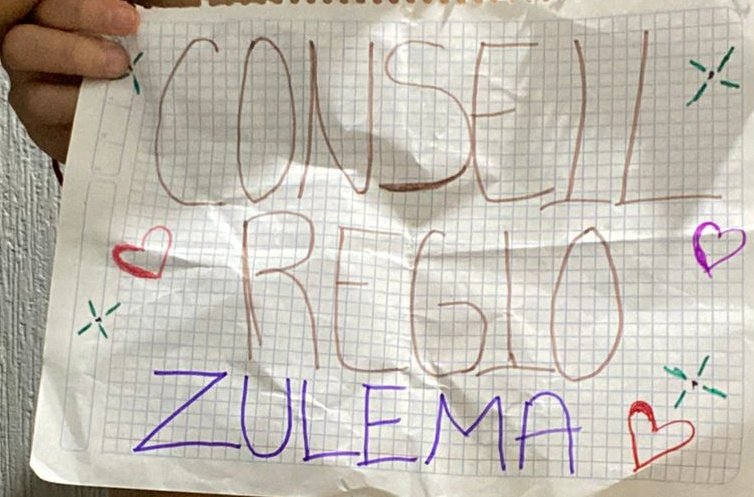 CONSEIL
REGIO
ZULEMA